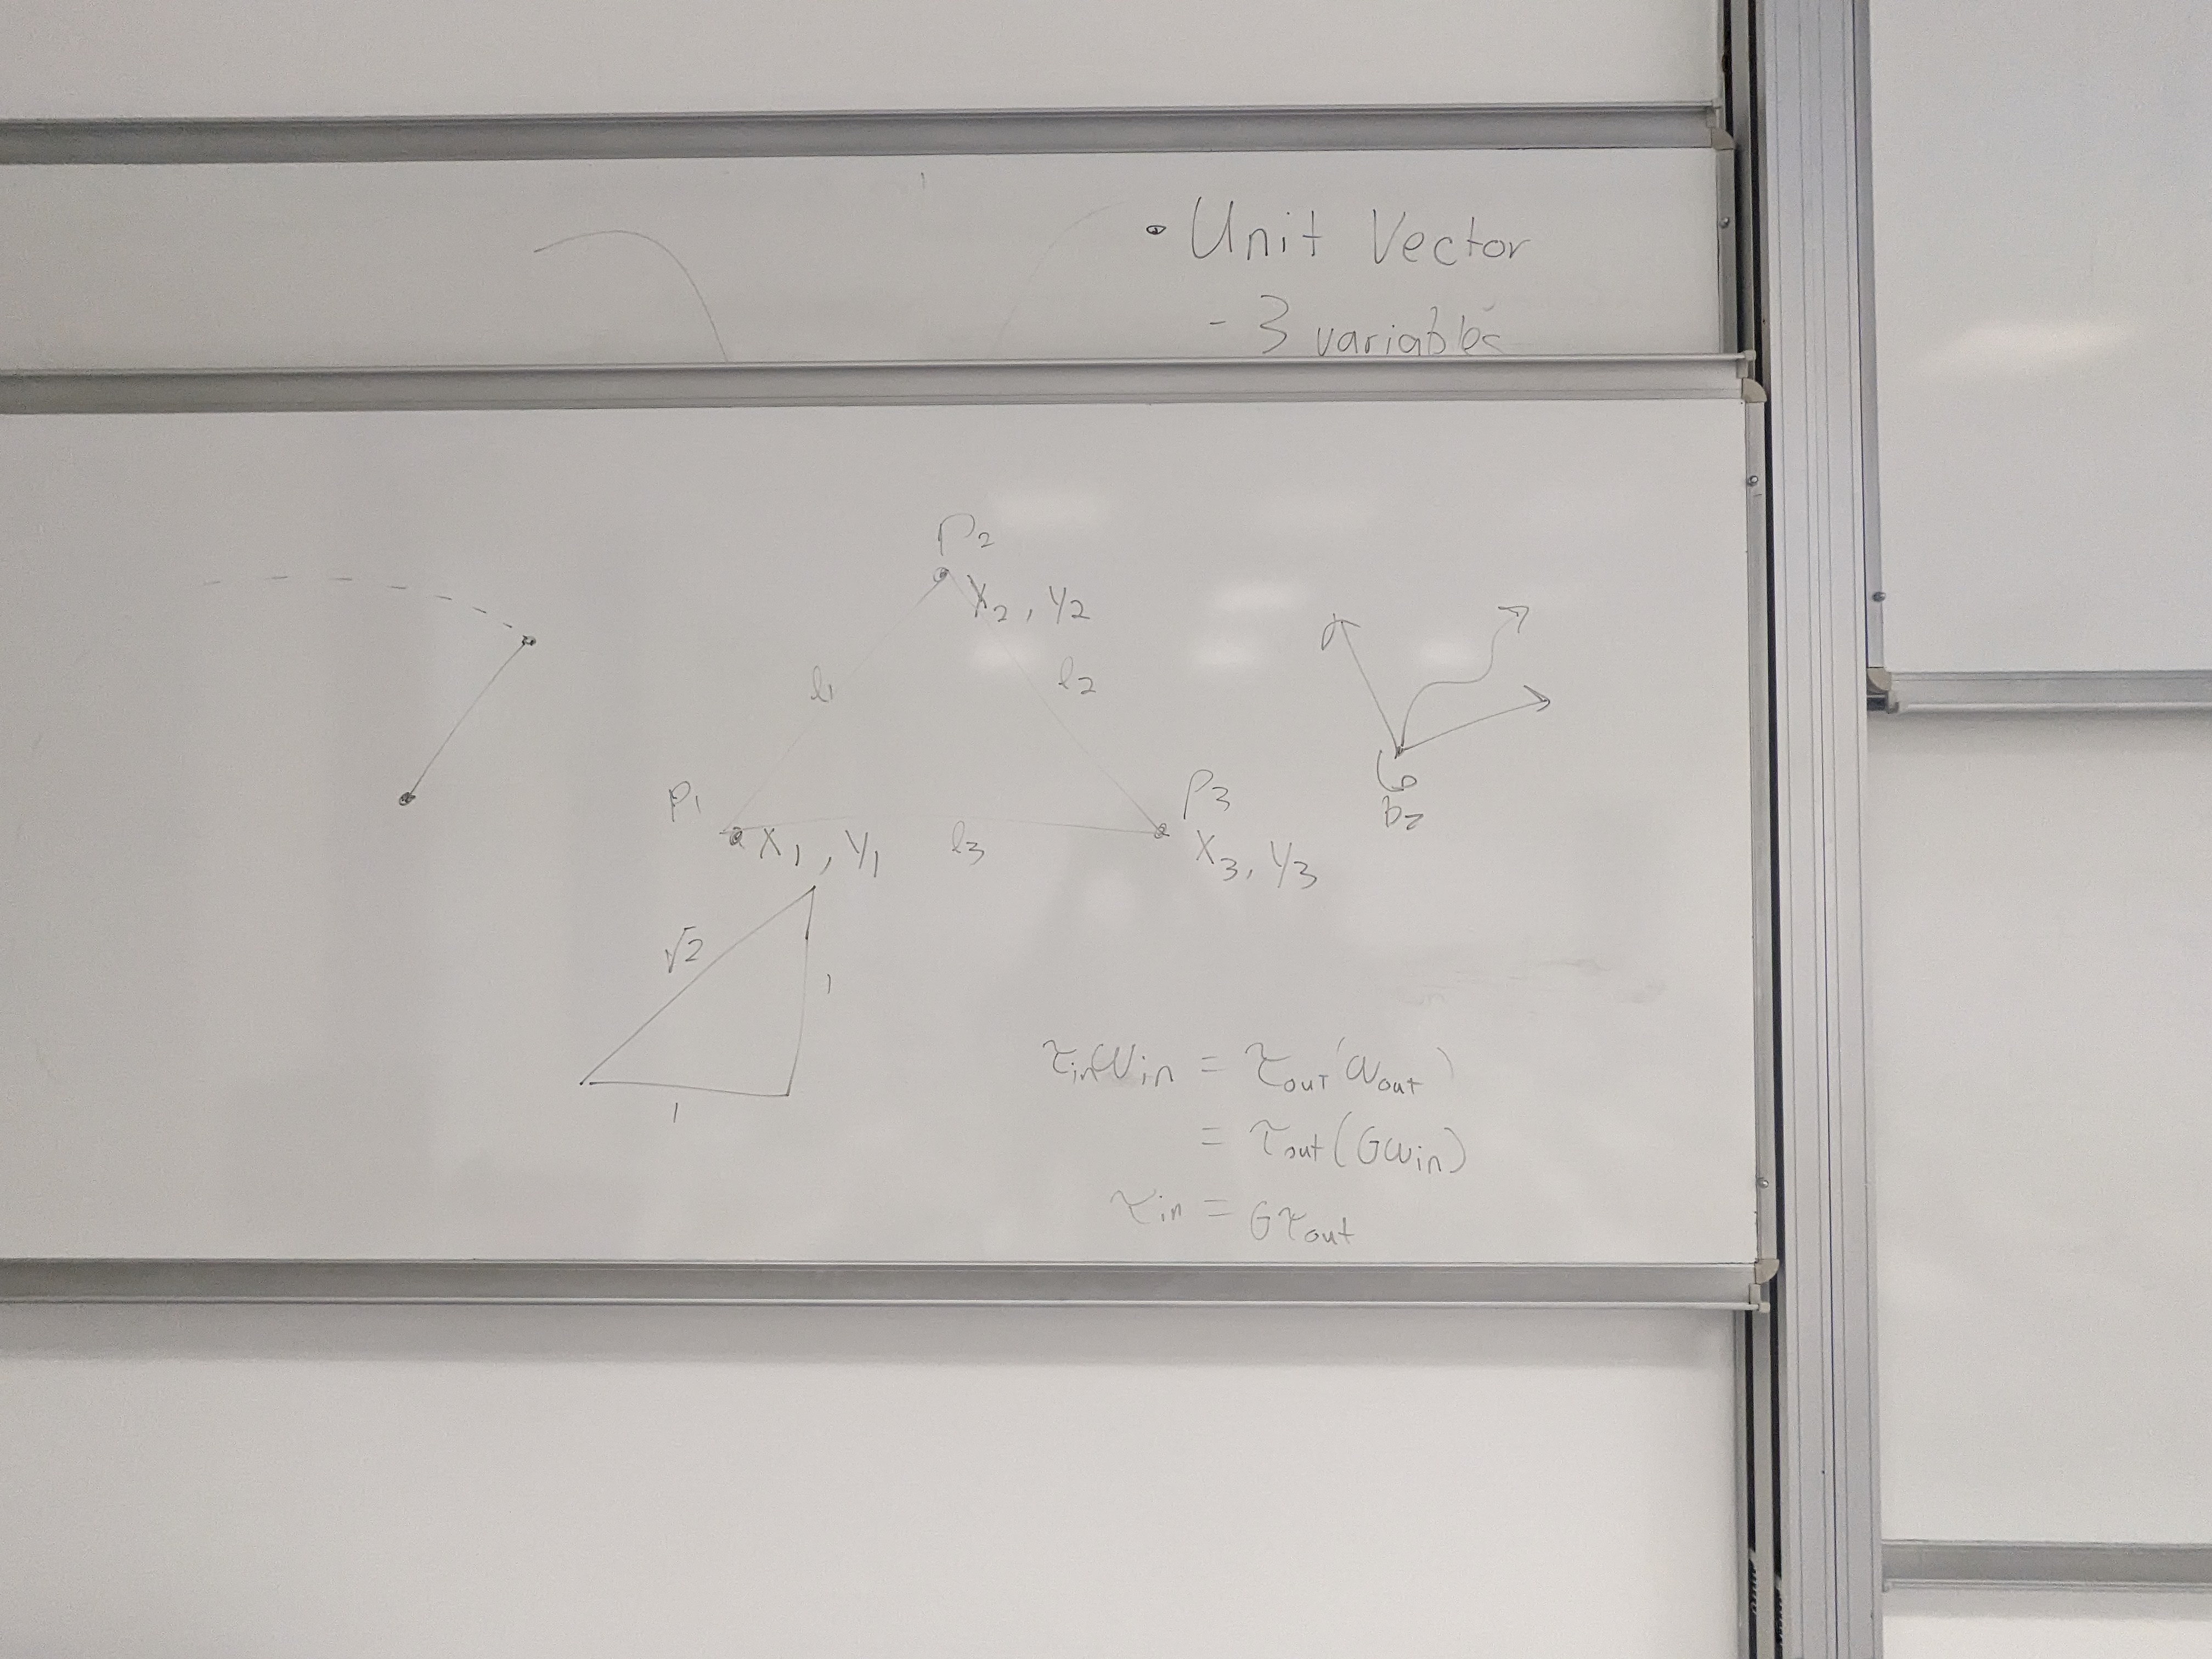 • Unit Vector
- 3 variables
P2
X2, Y2
l1
l2
P1
X1, Y1
l3
P3
X3, Y3
b2
√2
1
1
τin ωin = τout ωout
= τout (Gωin)
τin = Gτout